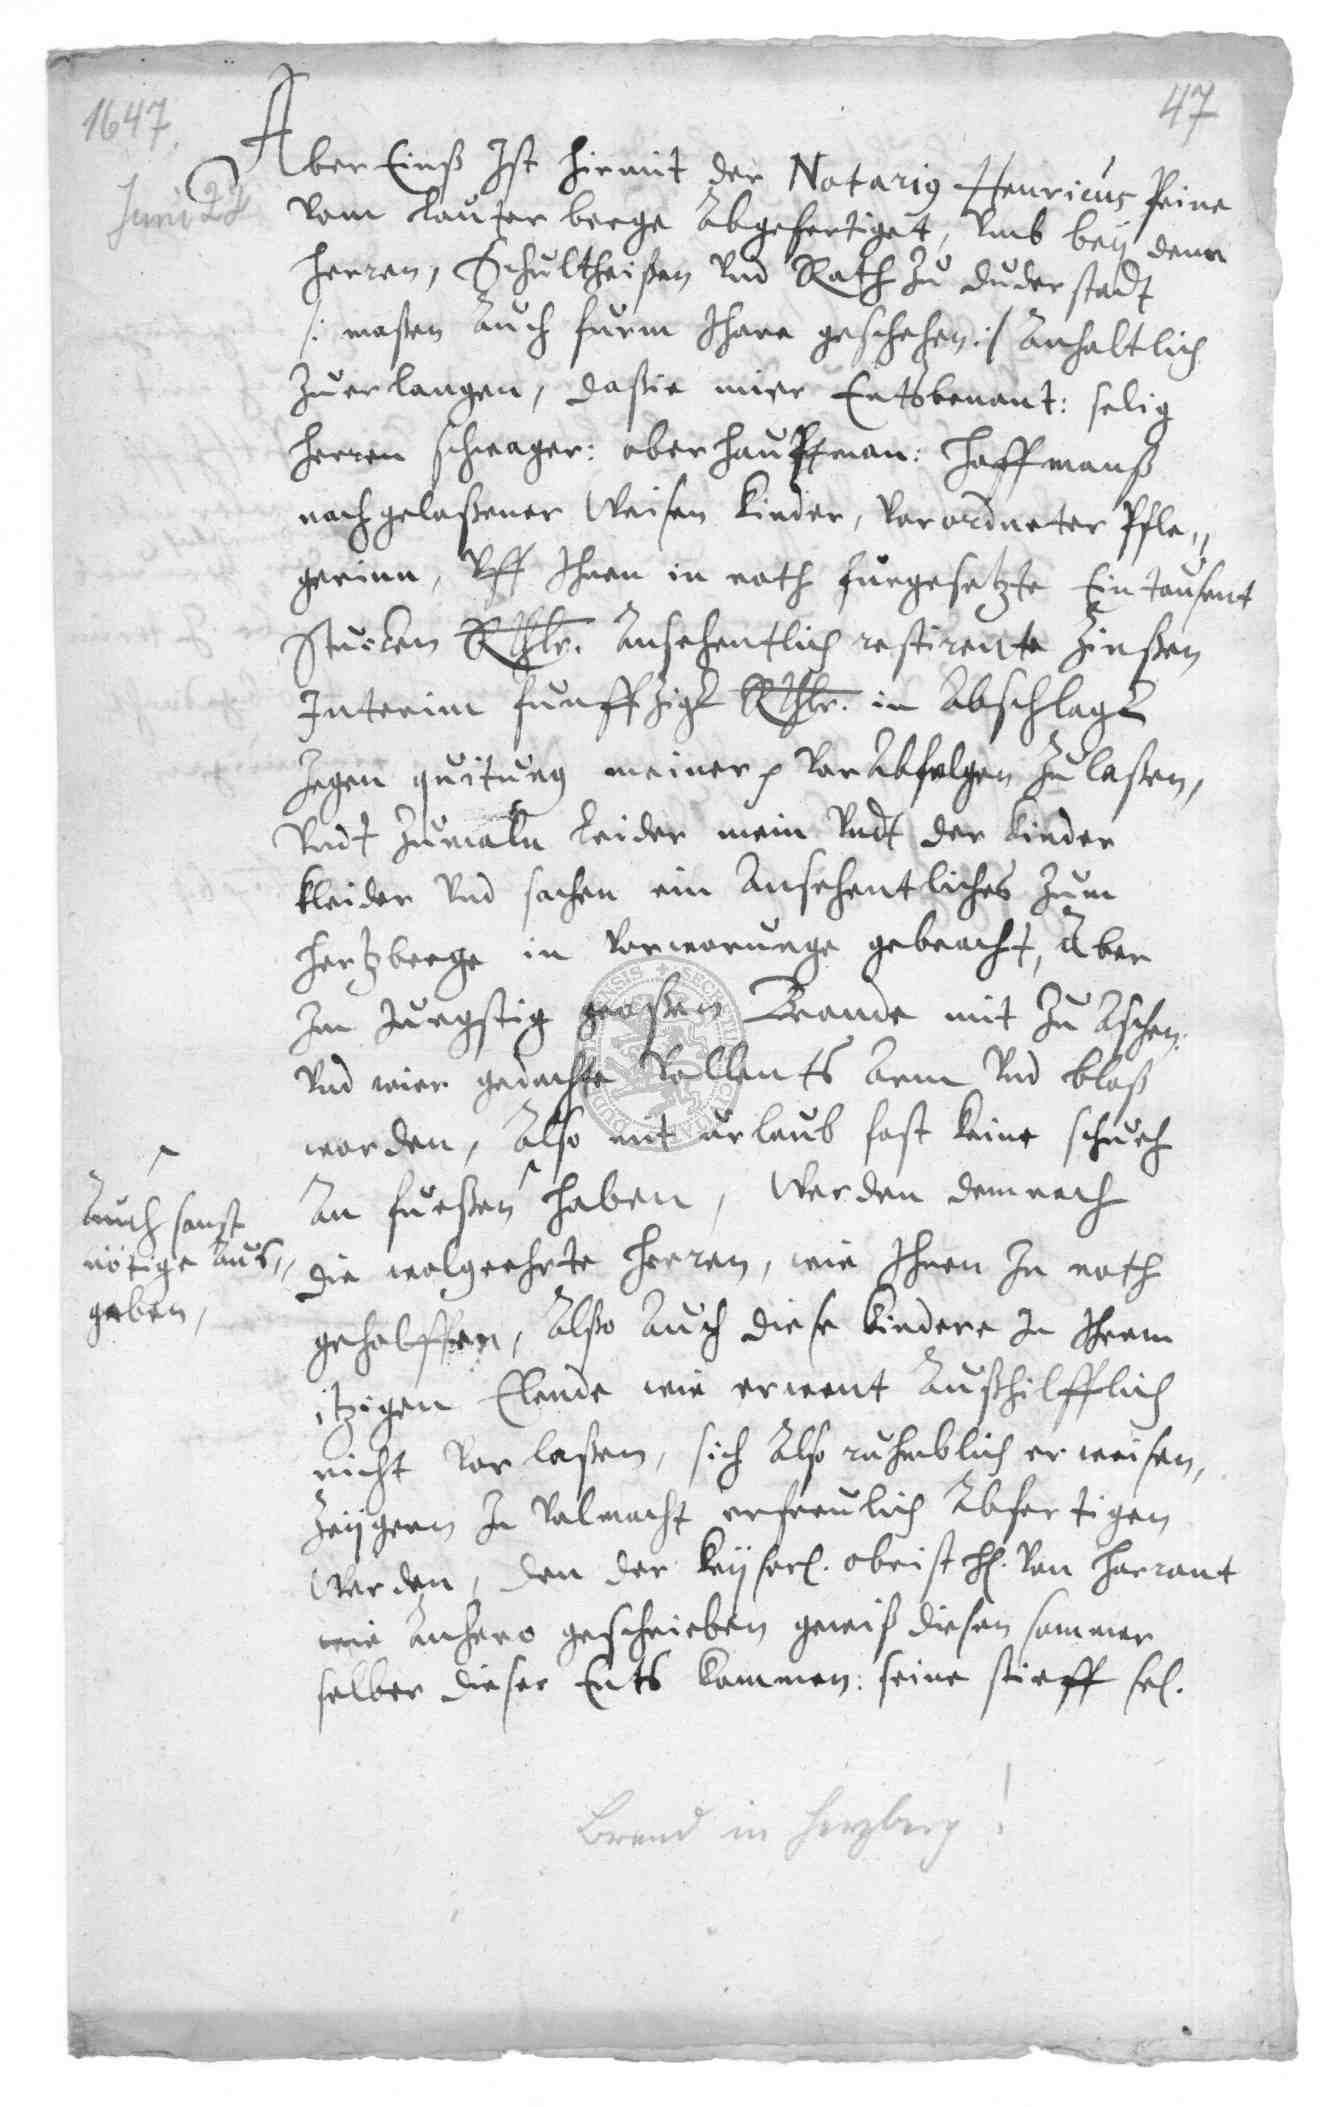 1647.
47
Juni 22
Aber Einß Ist hirmit der Notarius Henricus Peine
vom Lauterberge Abgefertiget, Umb bey denn
Herren, Schultheißen Und Rath zu Duderstadt
/: maßen Auch furm Ihare geschehen :/ Anhaltlich
zuerlangen, daßie mier Entsbenant: selig
Herren schwager: oberhauptman: Hoffmanß
nachgelaßener Weisen Kinder, Verordneter Pfle„
gerinn, Uff Ihnen in noth furgesetzte Ein tausent
Stucken Rthlr. Ansehentlich restirente Zinßen
Interim funffzigk Rthlr. in Abschlagk
Jegen quitung meiner Verabfolgen zulaßen,
Undt zumaln Leider mein Undt der Kinder
Kleider Und sachen ein Ansehentliches zum
Hertzberge in Verwarunge gebracht, Aber
Im Jungstig großen Brande mit zu Aschen
Und wier gedachte Vollents Arm Und bloß
worden, Also mit urlaub fast keine schueh
An fueßen haben, Werden demnach
Auch sonst
nötige Aus„
gaben,
die wolgeehrte Herren, wie Ihnen In noth
geholffen, Alßo Auch diese Kindere In Ihrem
itzigen Elende wie erwent Außhilfflich
nicht Verlaßen, sich Also ruhmblich erweisen,
Zeygern In Volmacht erfreulich Abfertigen
Werden, den der Keyserl. obrist H. Von Harrant
wie Anhero geschrieben gewiß diesen sommer
selber dieser Ents kommen: seine stieff sel.
Brand in Herzberg!